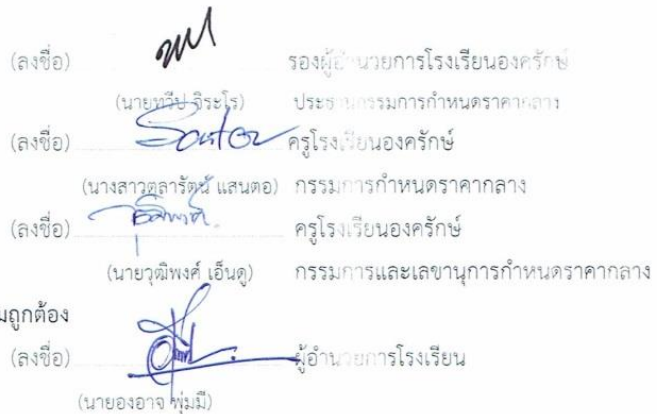 (ลงชื่อ) รองผู้อำนวยการโรงเรียนองครักษ์
(นายทวีป จิระโร) ประธานกรรมการกำหนดราคากลาง
(ลงชื่อ) ครูโรงเรียนองครักษ์
(นางสาวตุลารัตน์ แสนตอ) กรรมการกำหนดราคากลาง
(ลงชื่อ) ครูโรงเรียนองครักษ์
(นายวุฒิพงศ์ เอ็นดู) กรรมการและเลขานุการกำหนดราคากลาง
มถูกต้อง
(ลงชื่อ) ผู้อำนวยการโรงเรียน
(นายองอาจ พุ่มมี)